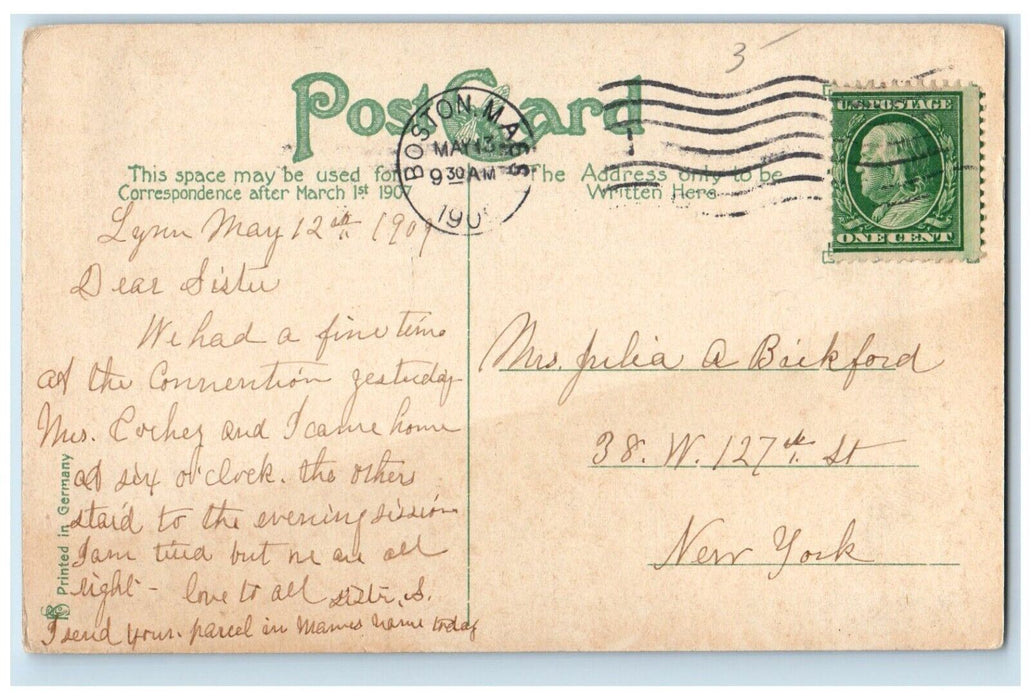 3
Post Card
BOSTON, MASS
MAY 13
9 30 AM
190
U.S. POSTAGE
ONE CENT
This space may be used for
Correspondence after March 1st 1907
The Address only to be
Written Here
Lynn May 12th. 1909
Dear Sister
We had a fine time
at the Convention yesterday
Mrs. and I came home
at six o'clock. the others
staid to the evening session
I am tired but we are all
right - love to all sister, S.
I send your parcel in Mames name today
Printed in Germany
Mrs. Julia A Bickford
38. W. 127th. St
New York